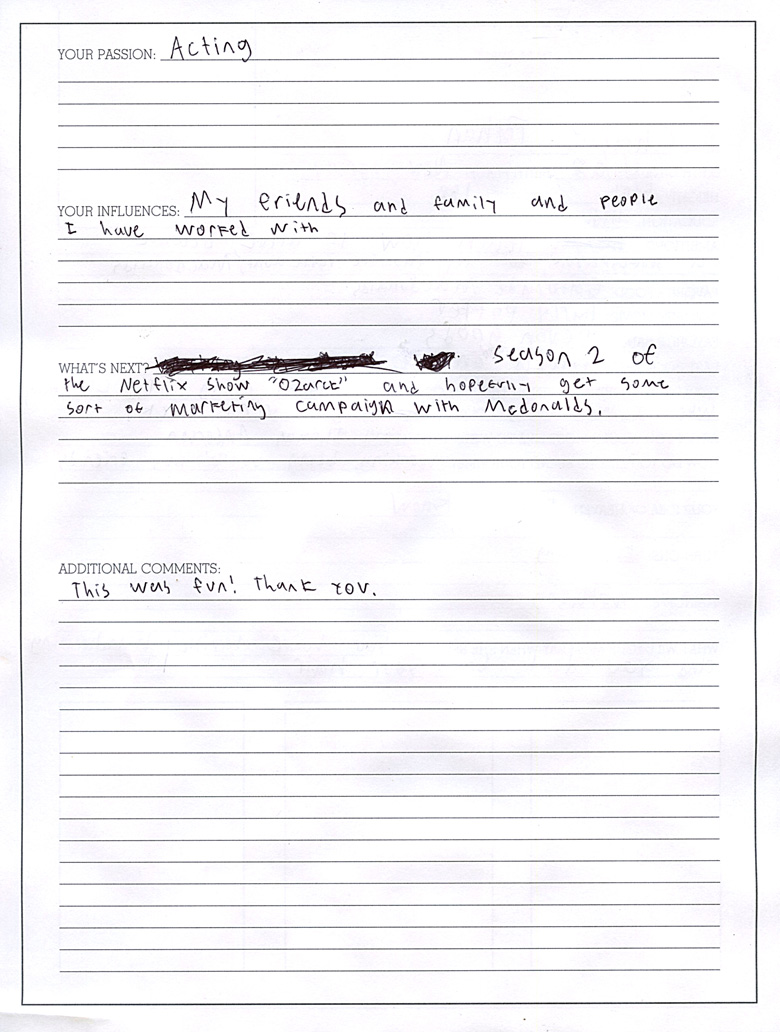 YOUR PASSION: Acting
YOUR INFLUENCES: My friends and family and people
I have worked with
WHAT'S NEXT? season 2 of
the Netflix show "Ozarck" and hopefully get some
sort of marketing campaign with Mcdonalds.
ADDITIONAL COMMENTS:
This was fun! Thank you.